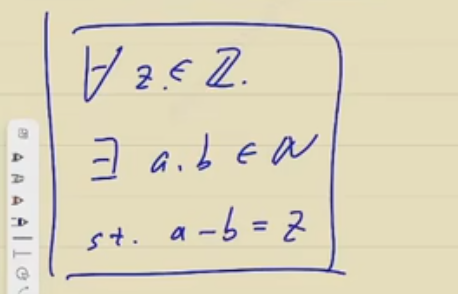 ∀ z ∈ ℤ.
∃ a, b ∈ ℕ
s.t. a - b = z